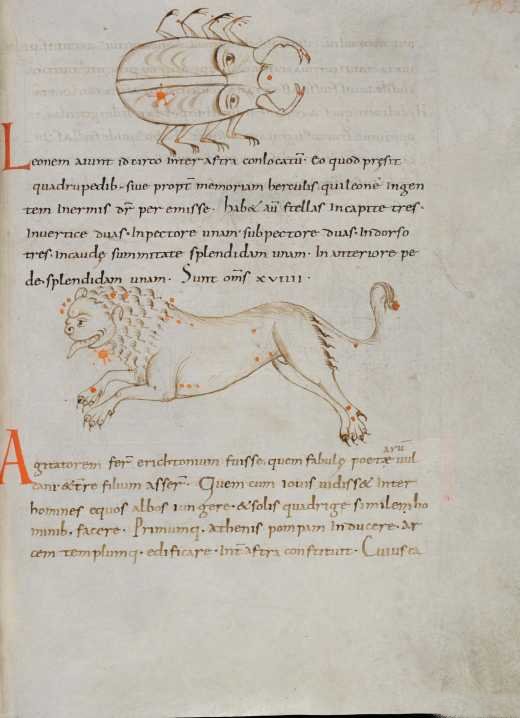 Leonem aiunt idcirco inter astra conlocatū. Eo quod pręsit
quadrupedib. siue propt memoriam herculis. qui leonē ingen
tem inermis dr̄ peremisse. hab& aū stellas incapite tres.
Inuertice duas. Inpectore unam. subpectore duas. Indorso
tres. Incaude summitate splendidam unam. In anteriore pe
de. splendidam unam. Sunt om̄s xviiii.
Agitatorem fer erichtonium fuisse. quem fabulę poetæ uul
arū
cani. &trę filium asser. Quem cum iouis uidiss& inter
homines equos albos iungere. &solis quadrigę similem ho
minib. facere. Primumq. athenis pompam inducere. ar
cem templumq. edificare. Int astra constituit. Cuius ca